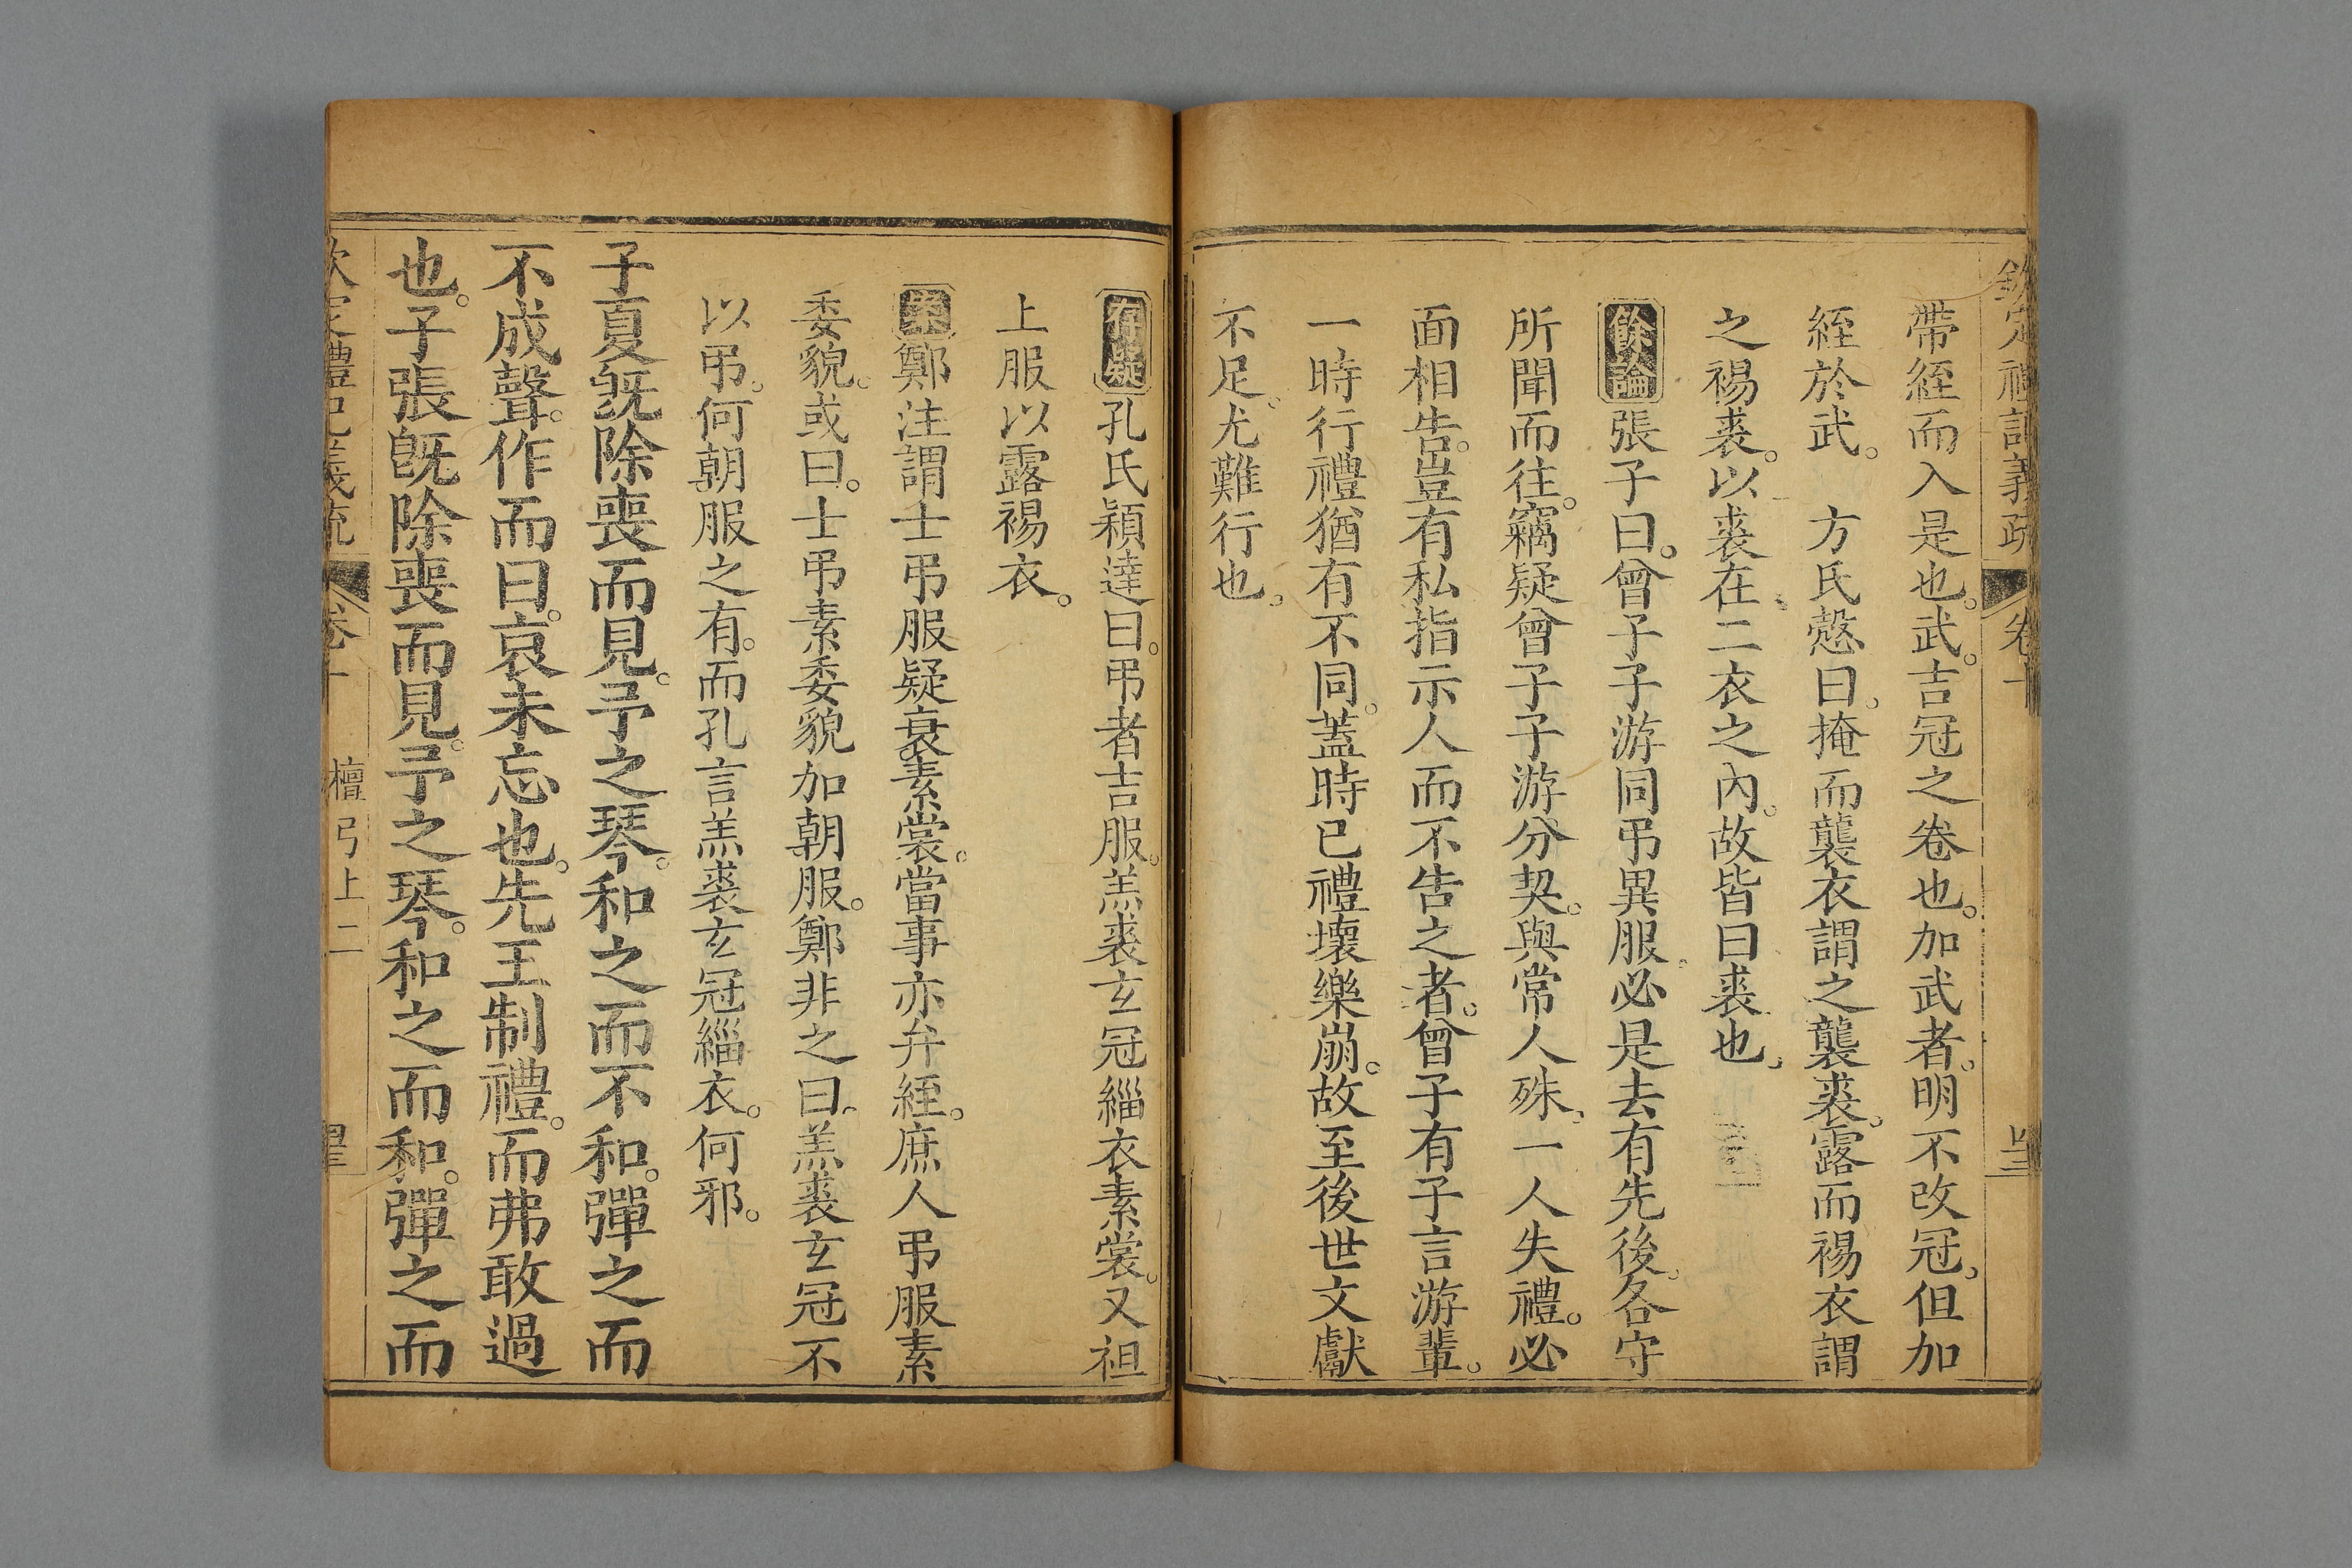 欽定禮記義疏 卷十
帶絰而入是也。武。吉冠之卷也。加武者。明不改冠。但加
絰於武。 方氏慤曰。掩而襲衣謂之襲裘。露而裼衣謂
之裼裘。以裘在二衣之內。故皆曰裘也。
餘論張子曰。曾子子游同弔異服。必是去有先後。各守
所聞而往。竊疑曾子子游分契。與常人殊。一人失禮。必
面相告。豈有私指示人而不告之者。曾子有子言游輩。
一時行禮猶有不同。蓋時已禮壞樂崩。故至後世文獻
不足。尤難行也。
存疑孔氏穎達曰。弔者吉服。羔裘玄冠緇衣素裳。又袒
上服以露裼衣。
案鄭注謂士弔服疑衰素裳。當事亦弁絰。庶人弔服素
委貌。或曰。士弔素委貌加朝服。鄭非之曰。羔裘玄冠不
以弔。何朝服之有。而孔言羔裘玄冠緇衣。何邪。
子夏旣除喪而見。予之琴。和之而不和。彈之而
不成聲。作而曰。哀未忘也。先王制禮。而弗敢過
也。子張旣除喪而見。予之琴。和之而和。彈之而
欽定禮記義疏 卷十 檀弓上二